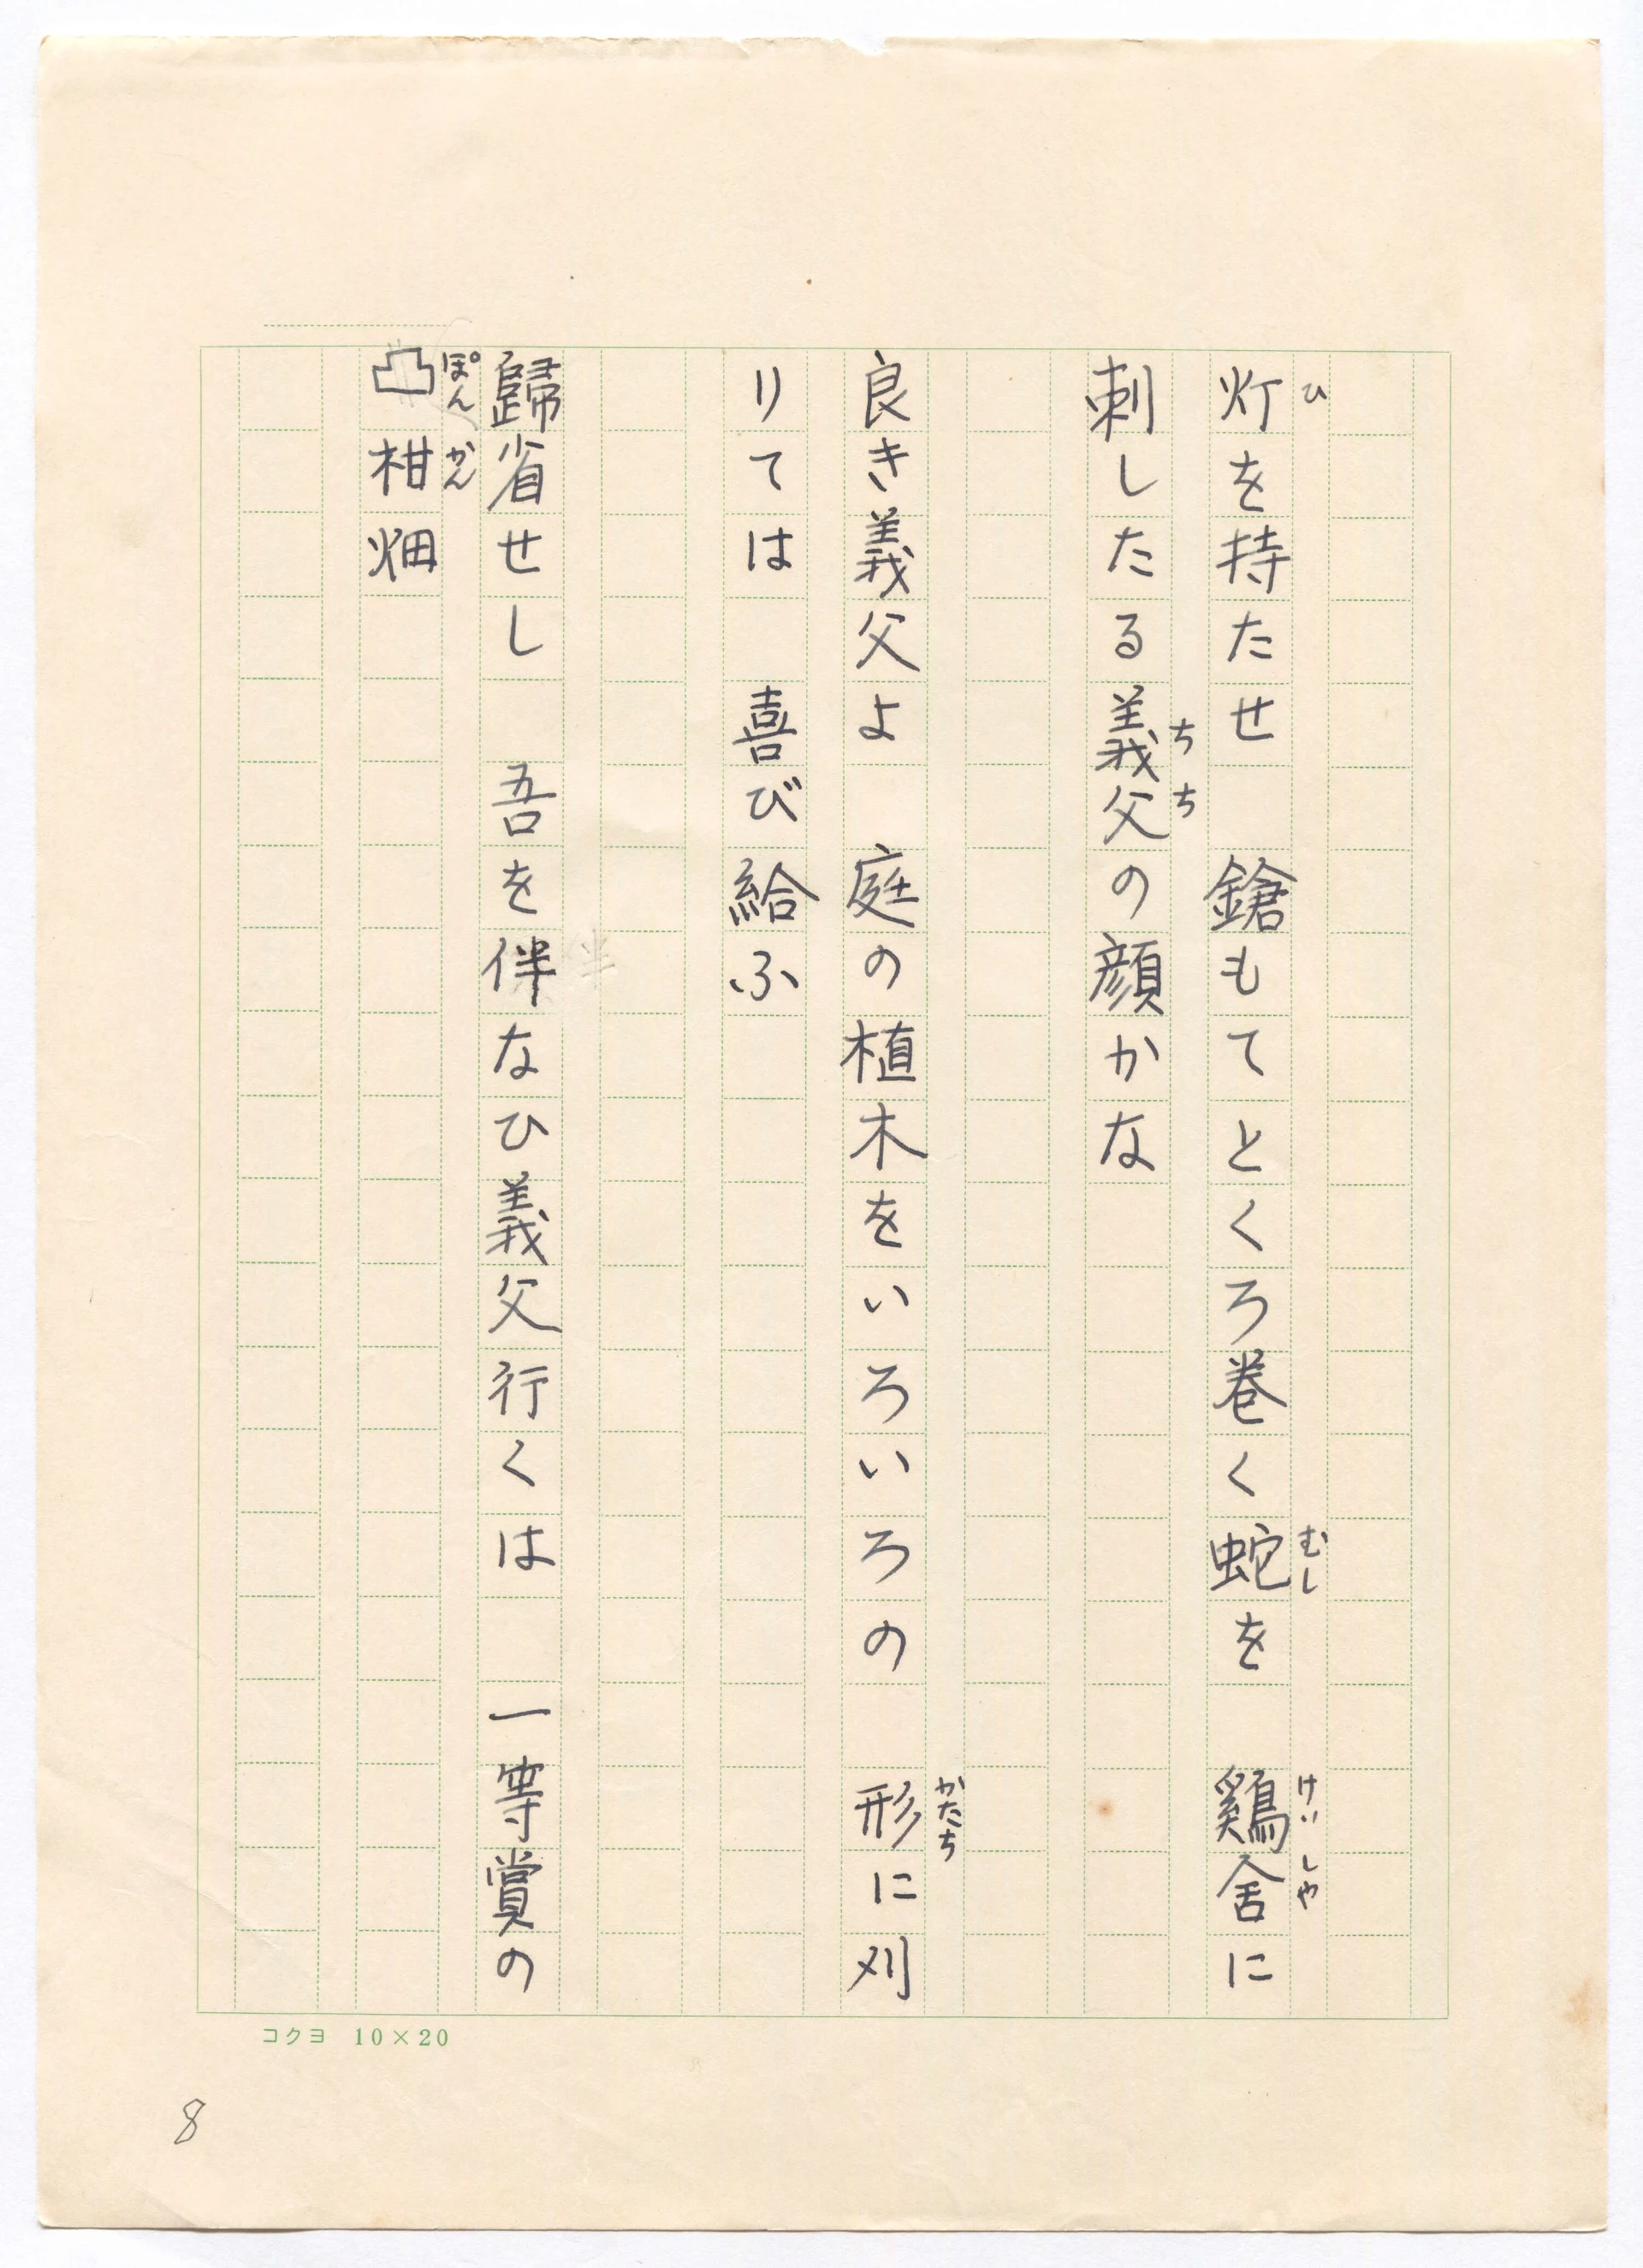 灯を持たせ　鎗もてとくろ巻く蛇を　鷄舎に
刺したる義父の顔かな
良き義父よ　庭の植木をいろいろの　形に刈
りては　喜び給ふ
歸省せし　吾を伴なひ義父行くは　一等賞の
凸柑畑
ひ
むし
けいしや
ちち
かたち
ぽんかん
コクヨ 10×20
8